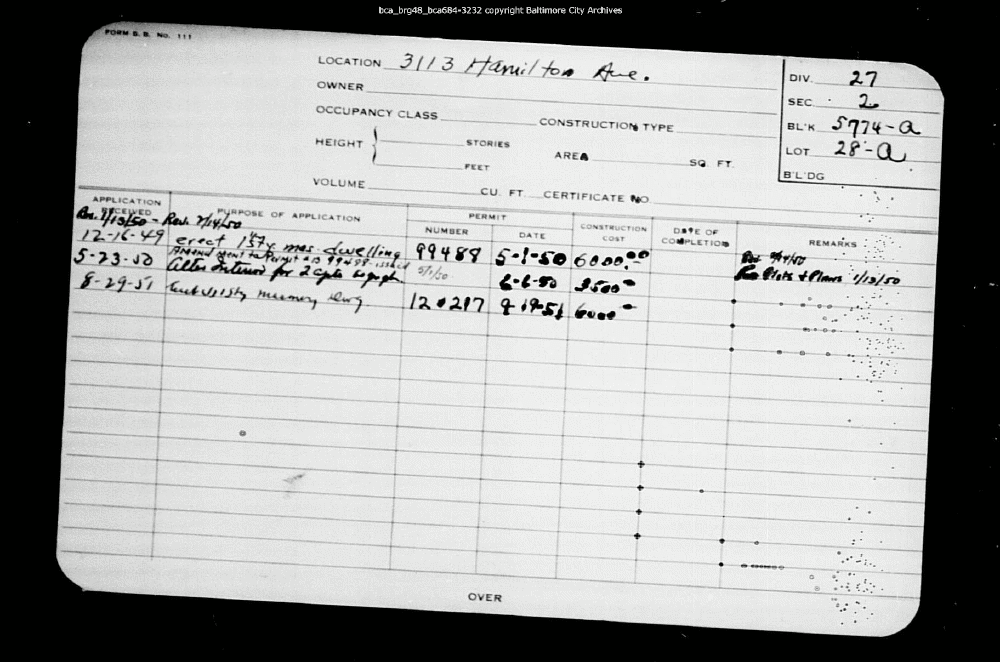 bca_brg48_bca684-3232 copyright Baltimore City Archives
FORM B. B. No. 111
LOCATION 3113 Hamilton Ave.
OWNER
OCCUPANCY CLASS CONSTRUCTION TYPE
HEIGHT STORIES
FEET
AREA SQ. FT.
VOLUME CU. FT. CERTIFICATE NO.
DIV. 27
SEC. 2
BL'K 5774-A
LOT 28-A
B'L'DG
APPLICATION RECEIVED
PURPOSE OF APPLICATION
PERMIT
NUMBER
DATE
CONSTRUCTION COST
DATE OF COMPLETION
REMARKS
1/13/50 - Rev. 2/14/50
12-16-49 erect 1 sty mas. dwelling 99488 5-1-50 6000.00
Amendment to Permit 5/1/50
Plots + Plans 1/13/50
5-23-50 alter interior for 2 apts 6-6-50 3500
8-29-51 9-19-51 6000
OVER